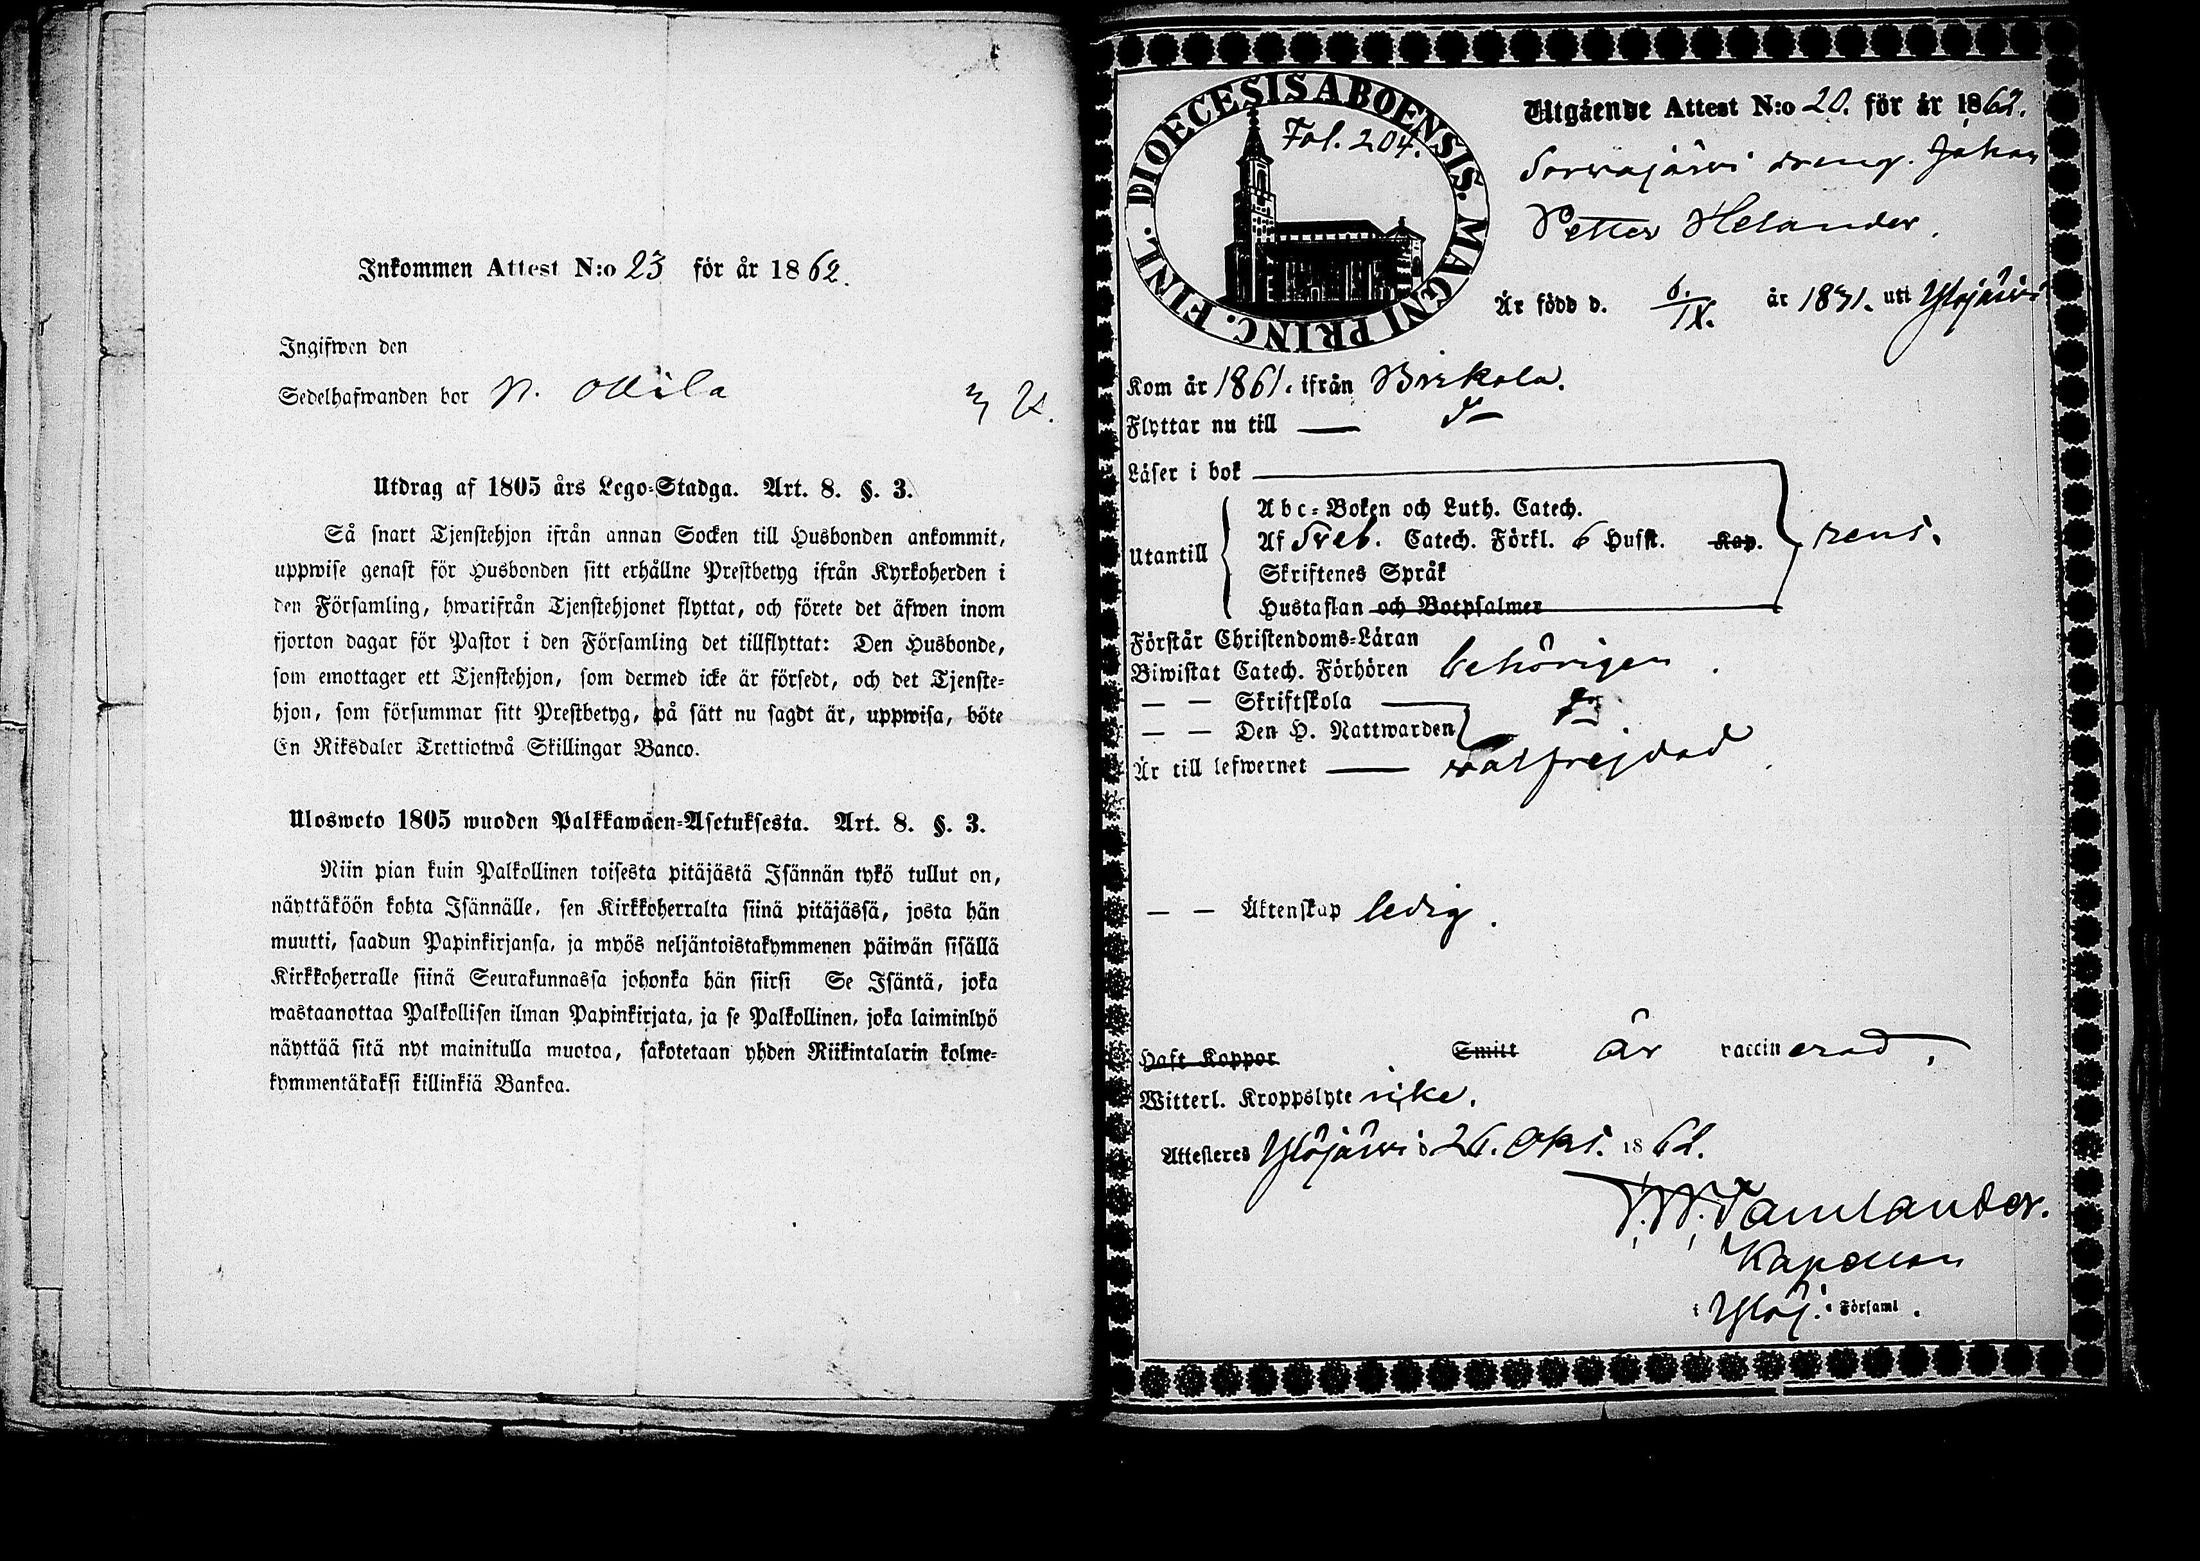 Inkommen Attest N:o 23 för år 1862.
Ingifwen den
Sedelhafwanden bor N. Ollila
Utdrag af 1805 års Lego-Stadga. Art. 8. §. 3.
Så snart Tjenstehjon ifrån annan Socken till Husbonden ankommit,
uppwise genast för Husbonden sitt erhållne Prestbetyg ifrån Kyrkoherden i
den Församling, hwarifrån Tjenstehjonet flyttat, och förete det äfwen inom
fjorton dagar för Pastor i den Församling det tillflyttat: Den Husbonde,
som emottager ett Tjenstehjon, som dermed icke är försedt, och det Tjenste-
hjon, som försummar sitt Prestbetyg, på sätt nu sagdt är, uppwisa, böte
En Riksdaler Trettiotwå Skillingar Banco.
Ulosweto 1805 wuoden Palkkawäen-Asetuksesta. Art. 8. §. 3.
Niin pian kuin Palkollinen toisesta pitäjästä Isännän tykö tullut on,
näyttäköön kohta Isännälle, sen Kirkkoherralta siinä pitäjässä, josta hän
muutti, saadun Papinkirjansa, ja myös neljäntoistakymmenen päiwän sisällä
Kirkkoherralle siinä Seurakunnassa johonka hän siirsi Se Isäntä, joka
wastaanottaa Palkollisen ilman Papinkirjata, ja se Palkollinen, joka laiminlyö
näyttää sitä nyt mainitulla muotoa, sakotetaan yhden Riikintalarin kolme-
kymmentäkaksi killinkiä Bankoa.
DIOECESIS ABOENSIS. MAGNI PRINC. FINL.
Fol. 204.
Utgående Attest N:o 20. för år 1862.
Sorwajärwi dreng. Johan
Petter Helander.
Är född d. 6./IX. år 1831. uti Ylöjärwi
Kom år 1861. ifrån Birkala.
Flyttar nu till — d—
Läser i bok
Abc-Boken och Luth. Catech.
Utantill Af Sveb. Catech. Förkl. 6 Hufst. Kap. rent.
Skriftenes Språk
Hustaflan och Botpsalmer
Förstår Christendoms-Läran
Biwistat Catech. Förhören behörigen.
— — Skriftskola
— — Den H. Nattwarden
Är till lefwernet — wälfrejdad
— — Äktenskap ledig.
Haft Koppor Smitt är vaccinerad.
Witterl. Kroppslyte icke.
Attesteres Ylöjärwi d 26. Okt. 1862.
Tamlander.
Kapellan
i Ylöj. Församl.